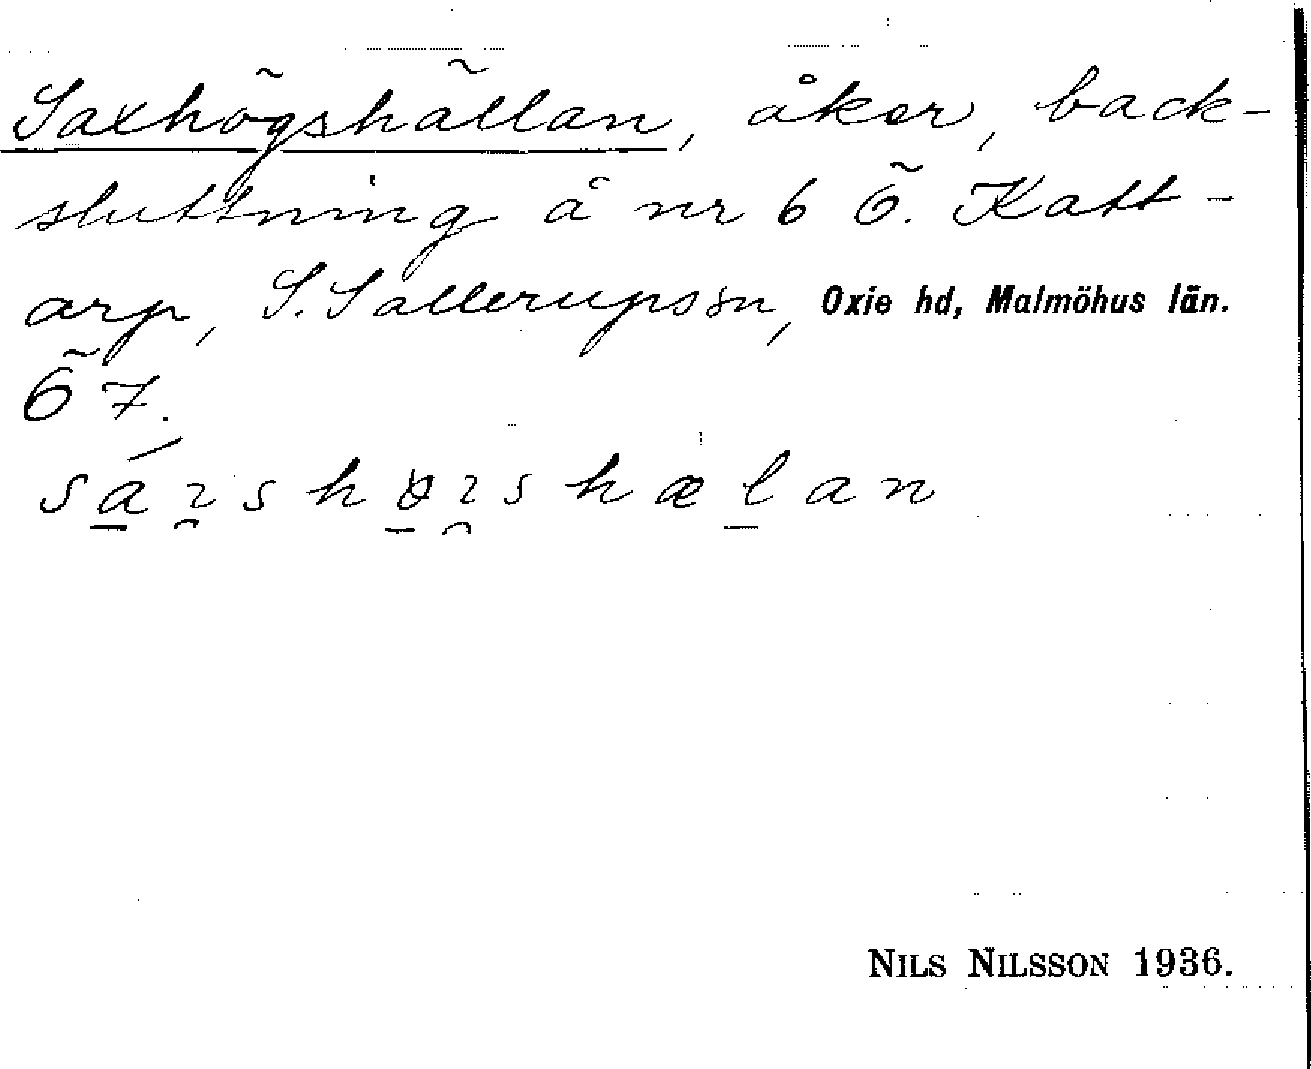 Saxhögshällan, åker, back-
sluttning å nr 6 Ö. Katt-
arp, S. Sallerups sn, Oxie hd, Malmöhus län.
Ö 7.
NILS NILSSON 1936.